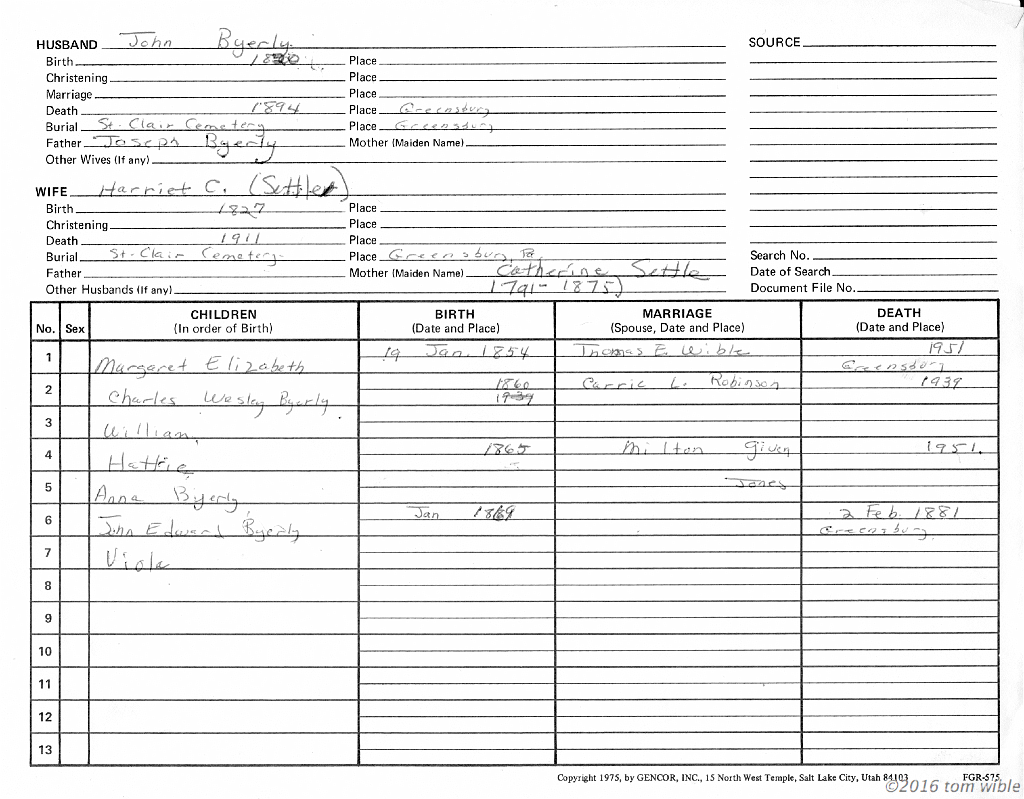 HUSBAND John Byerly SOURCE
Birth 18 Place
Christening Place
Marriage Place
Death 1894 Place Greensburg
Burial St. Clair Cemetery Place Greensburg
Father Joseph Byerly Mother (Maiden Name)
Other Wives (If any)
WIFE Harriet C. (Settle)
Birth 1827 Place
Christening Place
Death 1911 Place
Burial St. Clair Cemetery Place Greensburg, Pa. Search No.
Father Mother (Maiden Name) Catherine Settle Date of Search
Other Husbands (If any) 1791- 1875) Document File No.
CHILDREN BIRTH MARRIAGE DEATH
No. Sex (In order of Birth) (Date and Place) (Spouse, Date and Place) (Date and Place)
1 Margaret Elizabeth 19 Jan. 1854 Thomas E. Wible 1951 Greensburg
2 Charles Wesley Byerly 1860 1939 Carrie L. Robinson 1939
3 William
4 Hattie 1865 Milton Given 1951.
5 Anna Byerly Jones
6 John Edward Byerly Jan 1869 2 Feb. 1881 Greensburg
7 Viola
8
9
10
11
12
13
Copyright 1975, by GENCOR, INC., 15 North West Temple, Salt Lake City, Utah 84103 FGR-575
©2016 tom wible